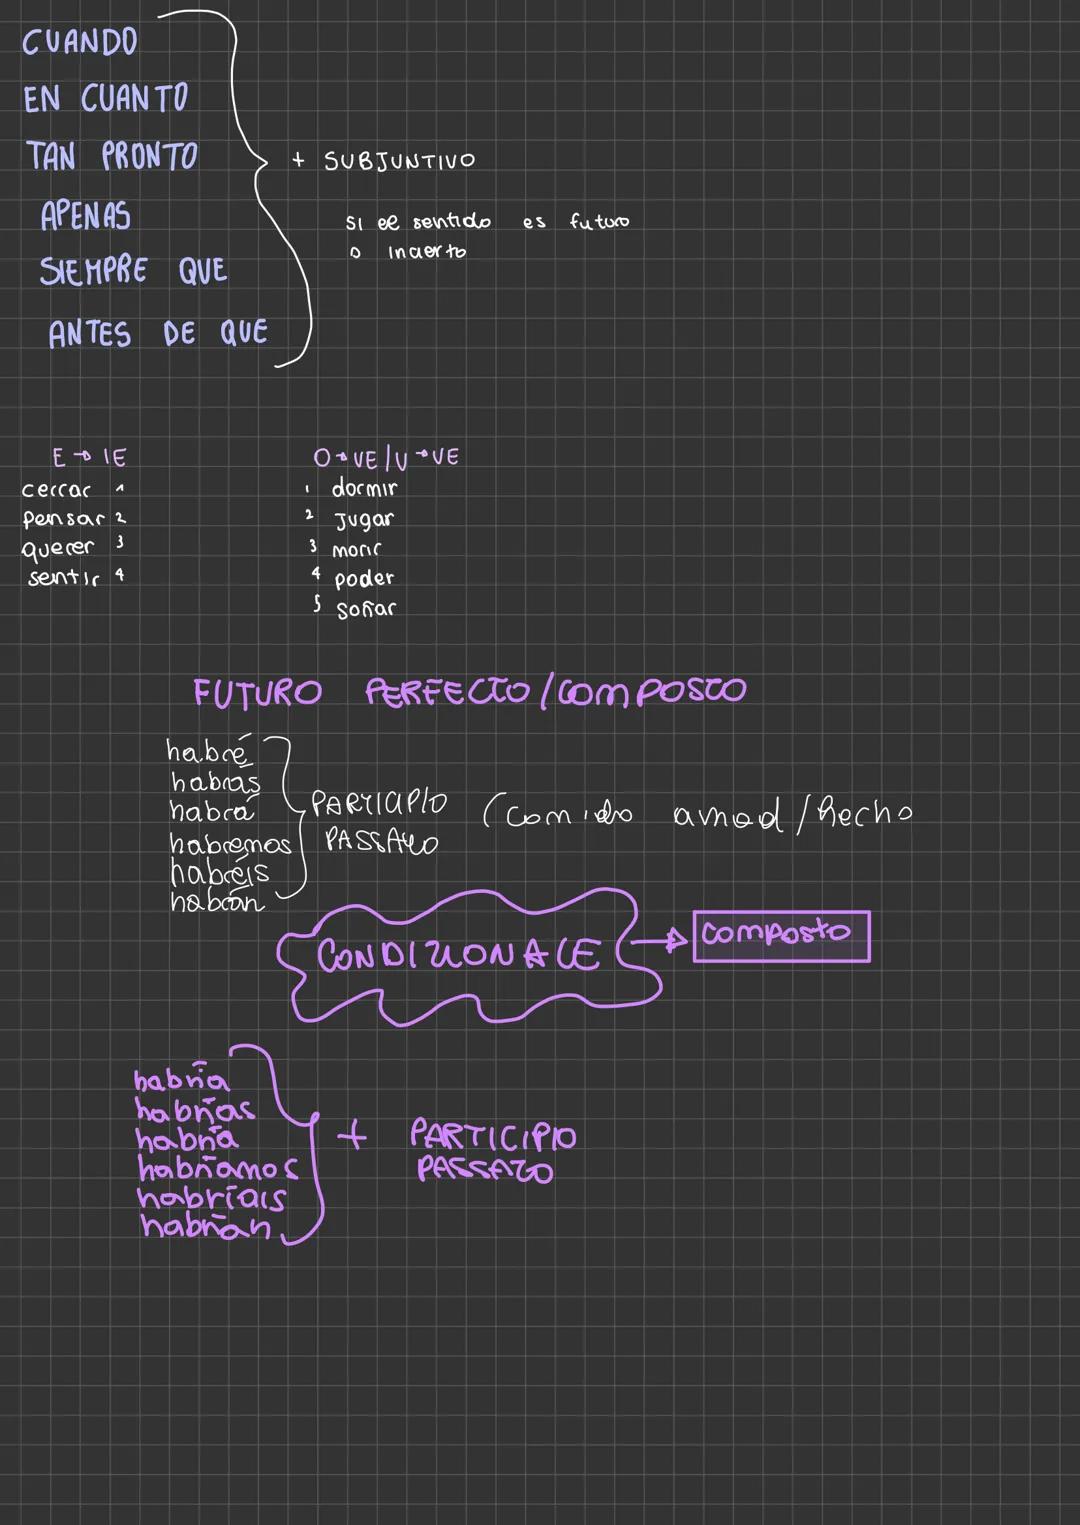 CUANDO
EN CUANTO
TAN PRONTO
APENAS
SIEMPRE QUE
ANTES DE QUE
+ SUBJUNTIVO
SI el sentido es futuro
o incierto
E → IE
cerrar 1
pensar 2
querer 3
sentir 4
O → UE / U → UE
1 dormir
2 Jugar
3 morir
4 poder
5 soñar
FUTURO PERFECTO / COMPOSTO
habré
habrás
habrá
habremos
habréis
habrán
PARTICIPIO
PASSATO
(comido amad / hecho
CONDIZIONALE → composto
habría
habrías
habría
habríamos
habríais
habrían
+ PARTICIPIO
PASSATO